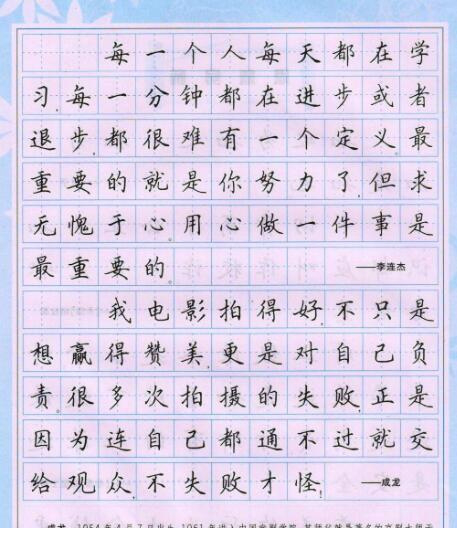 每一个人每天都在学
习,每一分钟都在进步或者
退步,都很难有一个定义。最
重要的就是你努力了,但求
无愧于心。用心做一件事是
最重要的。 ——李连杰
我电影拍得好,不只是
想赢得赞美,更是对自己负
责。很多次拍摄的失败,正是
因为连自己都通不过就交
给观众,不失败才怪! ——成龙